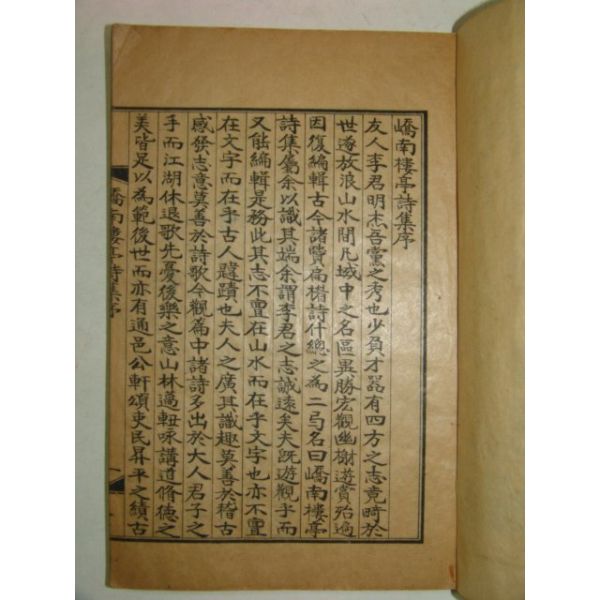 嶠南樓亭詩集序
友人李君明杰吾黨之秀也少負才器有四方之志竟畸於
世遂放浪山水間凡域中之名區異勝宏觀幽榭遊賞殆遍
因復編輯古今諸賢扁楣詩什總之為二弓名曰嶠南樓亭
詩集屬余以識其端余謂李君之志誠遠矣夫旣遊觀乎而
又能編輯是務此其志不亶在山水而在乎文字也亦不亶
在文字而在乎古人躅蹟也夫人之廣其識趣莫善於稽古
感發志意莫善於詩歌今觀篇中諸詩多出於大人君子之
手而江湖休退歌先憂後樂之意山林薖軸咏講道脩德之
美皆足以為範後世而亦有通邑公軒頌吏民昇平之績古
嶠南樓亭詩集序
一